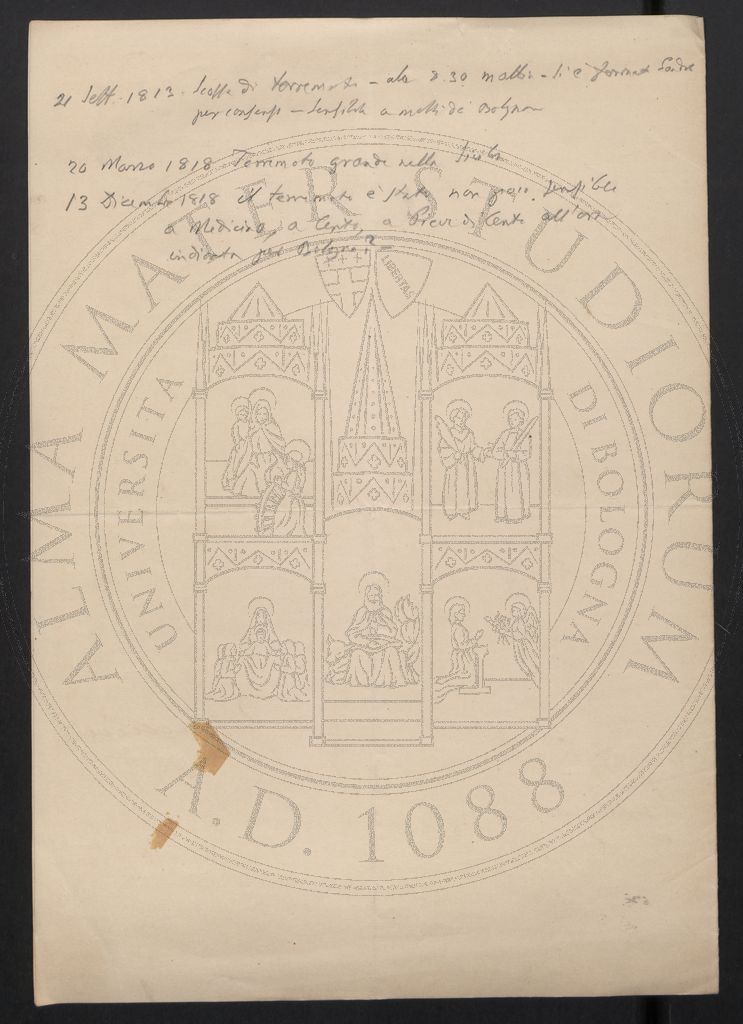 21 Sett. 1813. Scossa di terremoto – alle 8.30 mattin – Si è
per – Sensibile a molti di Bologna
20 Marzo 1818 Terremoto grande nella Sicilia
13 Dicembre 1818 il terremoto è stato non poco sensibile
a Medicina, a Cento, a Pieve di Cento all'ora
indicata per Bologna? –
LIBERTAS
ALMA MATER STUDIORUM
UNIVERSITA DI BOLOGNA
A.D. 1088